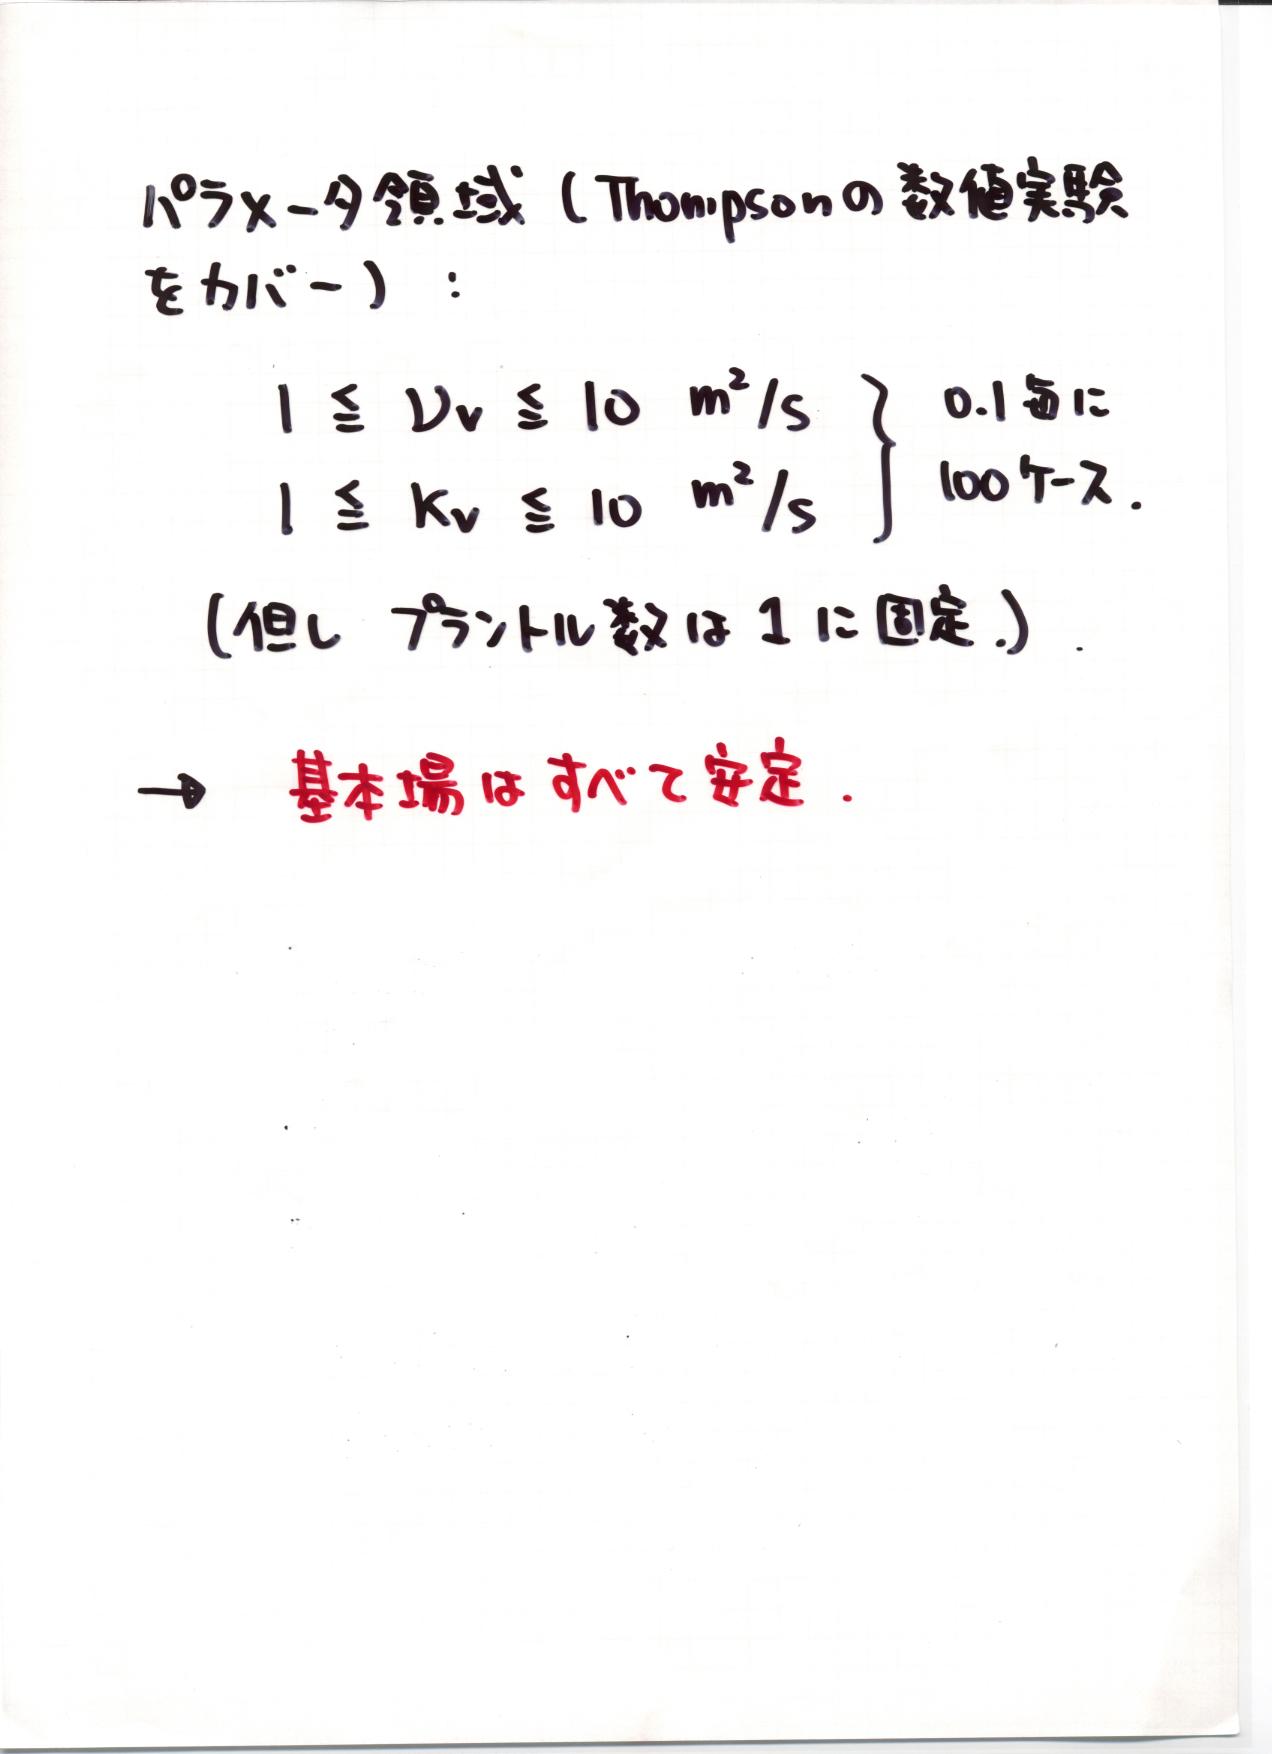 パラメータ領域 (Thompsonの数値実験
をカバー) :
1 ≦ νv ≦ 10 m²/s } 0.1毎に
1 ≦ κv ≦ 10 m²/s 100ケース.
(但し プラントル数は1に固定.) .
→ 基本場はすべて安定.